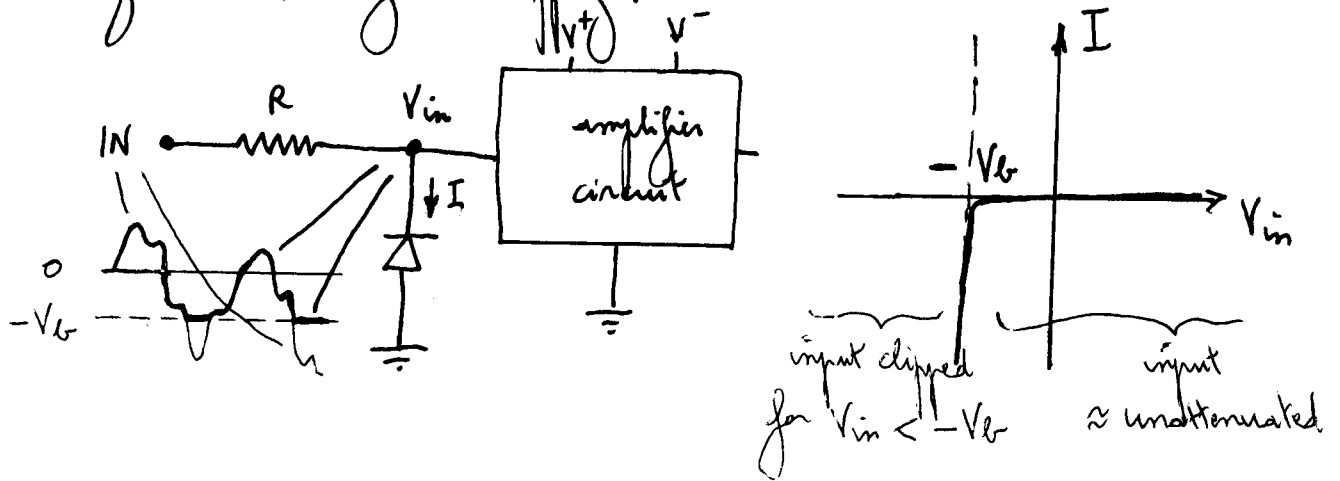 V⁺ V⁻
R
IN
Vin
amplifier
circuit
I
0
-Vb
I
- Vb
Vin
input clipped
for Vin < -Vb
input
≈ unattenuated